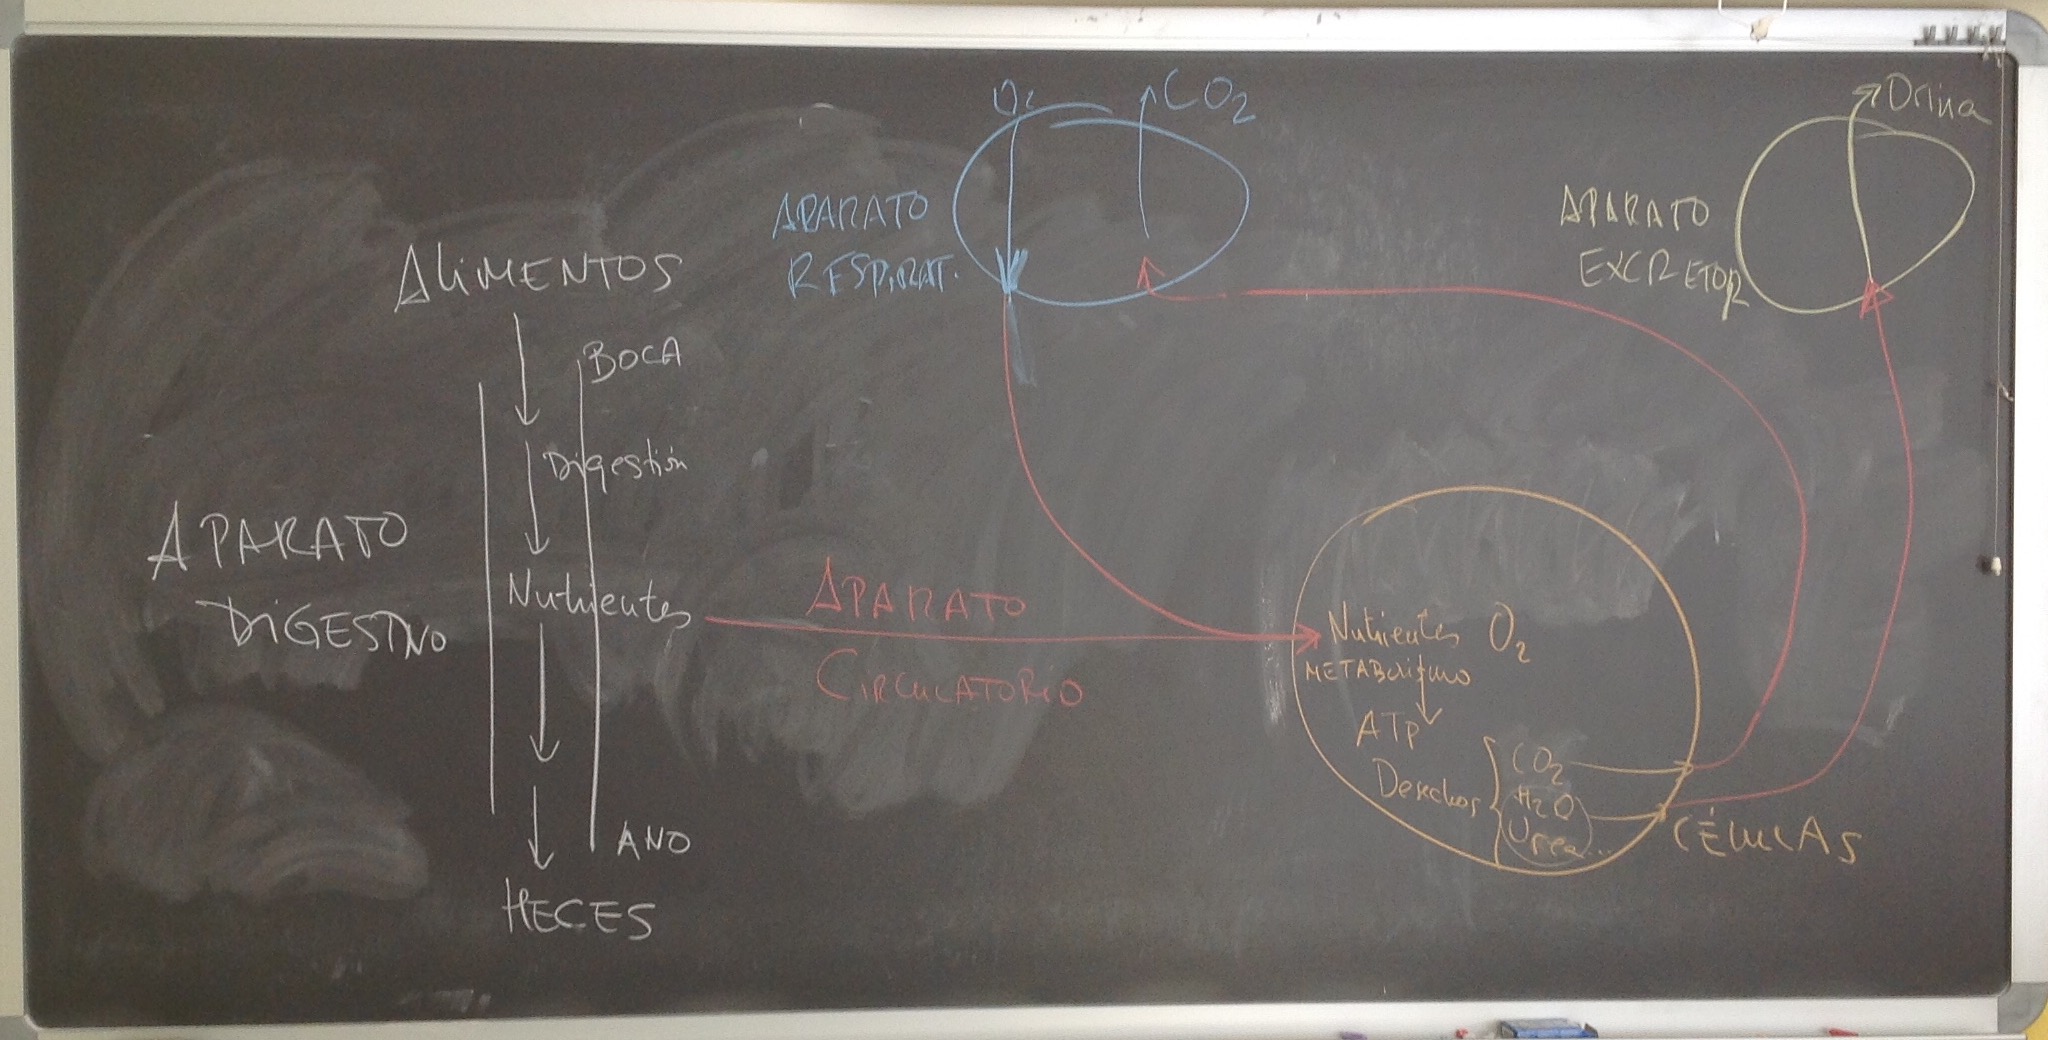 ALIMENTOS
BOCA
Digestión
APARATO
DIGESTIVO
Nutrientes
ANO
HECES
O2
CO2
APARATO
RESPIRAT.
APARATO
CIRCULATORIO
Orina
APARATO
EXCRETOR
Nutrientes O2
METABOLISMO
ATP
Desechos
CO2
H2O
Urea...
CÉLULAS